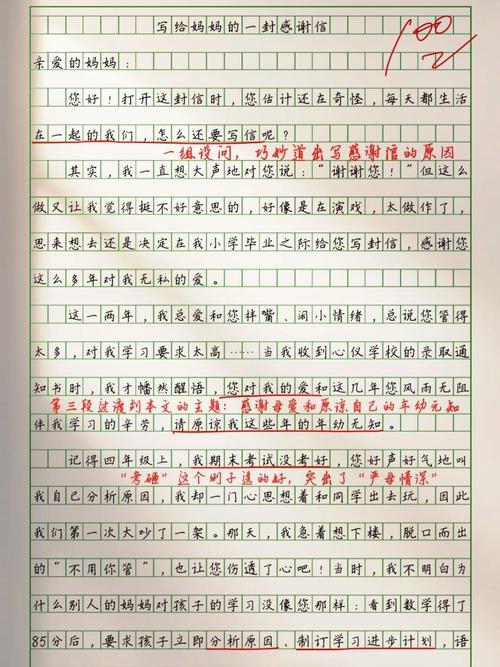 写给妈妈的一封感谢信
100
亲爱的妈妈：
您好！打开这封信时，您估计还在奇怪，每天都生活
在一起的我们，怎么还要写信呢？
一组设问，巧妙道出写感谢信的原因
其实，我一直想大声地对您说：“谢谢您！”但这么
做又让我觉得挺不好意思的，好像是在演戏，太做作了，
思来想去还是决定在我小学毕业之际给您写封信，感谢您
这么多年对我无私的爱。
这一两年，我总爱和您拌嘴、闹小情绪，总说您管得
太多，对我学习要求太高……当我收到心仪学校的录取通
知书时，我才幡然醒悟，您对我的爱和这几年您风雨无阻
第三段过渡到本文的主题：感谢母爱和原谅自己的年幼无知
伴我学习的辛劳，请原谅我这些年的年幼无知。
记得四年级上，我期末考试没考好，您好声好气地叫
“考砸”这个例子选的好，突出了“严母情深”
我自己分析原因，我却一门心思想着和同学出去玩，因此
我们第一次大吵了一架。那天，我急着想下楼，脱口而出
的“不用你管”，也让您伤透了心吧！当时，我不明白为
什么别人的妈妈对孩子的学习没像您那样：看到数学得了
85分后，要求孩子立即分析原因、制订学习进步计划，语